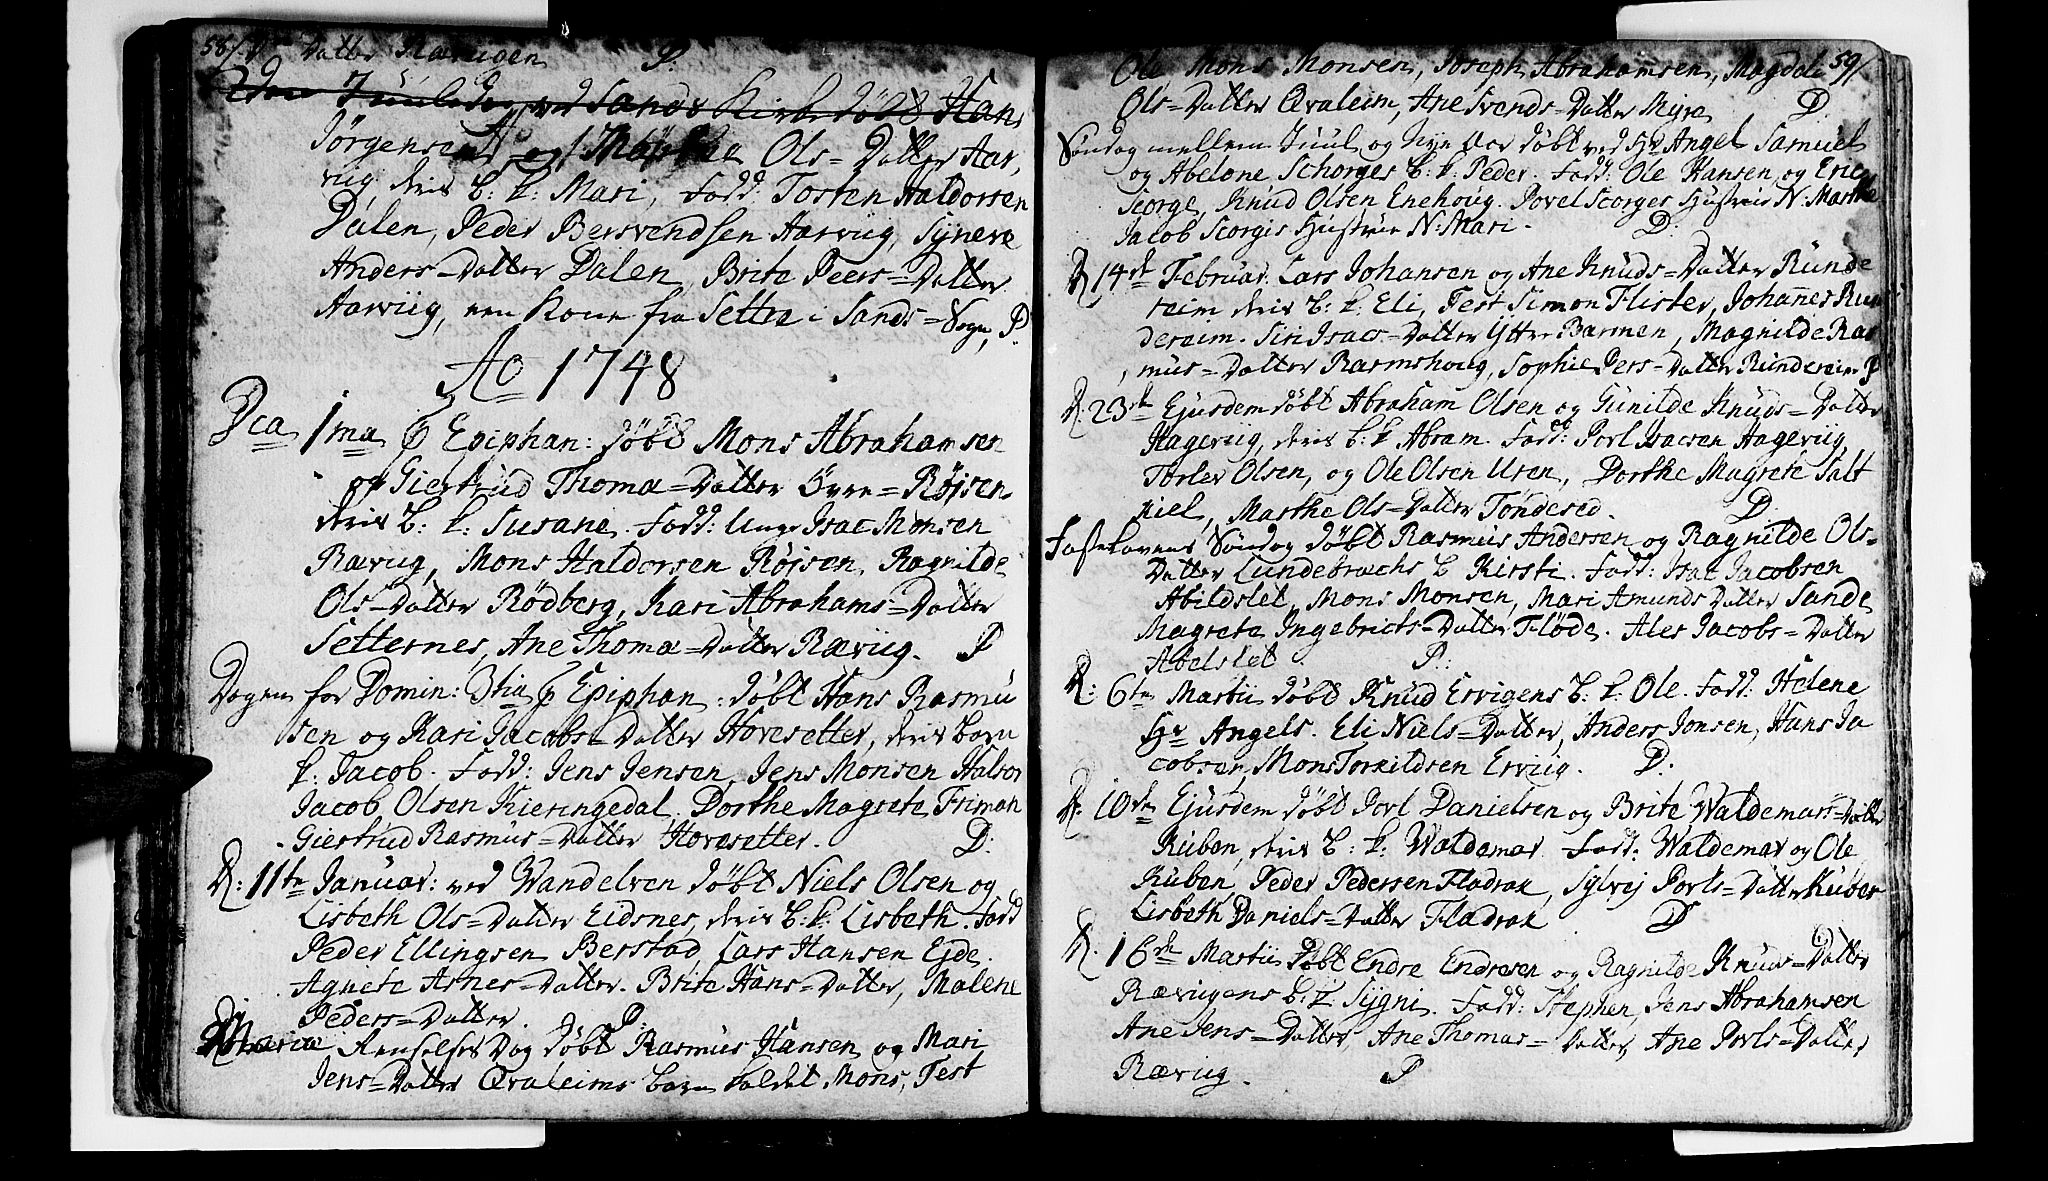 58/. Datter Rævigen P.
2den Juuledag ved Sands Kirke døbt Hans
Jørgensen og Marthe Ols=Datter Aar,
vüg deris b: k: Mari, Fadd: Torsten Haldorsen
Dalen, Peder Bersvendsen Aarvüg, Syneve
Anders=Datter Dalen, Brite Peers=Datter
Aarvüg, een Kone fra Settre i Sands=Sogn, P.
Ao 1748
Dca 1ma p Epiphan: døbt Mons Abrahamsen
og Giertrüd Thomæ=Datter Øvre=Røjsen
deris b: k: Susane. Fadd: Unge Isac Monsen
Rævüg, Mons Haldorsen Røjsen, Ragnilde
Ols=Datter Rødberg, Kari Abrahams=Datter
Setternes, Ane Thomæ=Datter Rævüg. P
Dagen for Domin: 3tia p Epiphan: døbt Hans Rasmu
sen og Kari Jacobs=Datter Hovesetter, deris barn
k: Jacob. Fadd: Jens Jensen, Jens Monsen Halsor
Jacob Olsen Kieringedal. Dorthe Magrete Friman
Giertrud Rasmus=Datter Hovesetter. D:
D: 11te Januar: ved Vandelven døbt Niels Olsen og
Lisbeth Ols=Datter Eidsnes, deris b: k: Lisbeth. Fadd
Peder Ellingsen Berstad, Lars Hansen Ejde.
Agnete Arnes=Datter. Brite Hans=Datter, Malene
Peders=Datter. P.
Mariæ Renselses Dag døbt Rasmus Hansen og Mari
Jens=Datter Qvaleims barn kaldet Mons, Test
59/
Ole Mons Monsen, Joseph Abrahamsen, Magdel
Ols=Datter Qvaleim, Ane Svends=Datter Myre D.
Søndag mellem Juul og Nye Aar døbt ved Hr Angel Samuel
og Abelone Schorges b: k: Peder. Fadd: Ole Hansen og Eric
Scorge, Knud Olsen Enehoug. Povel Scorges Hustrue N: Marthe
Jacob Scorgis Hustrue N: Mari. D:
D 14de Februar. Lars Johansen og Ane Knuds=Datter Ründe
reim deris b: k: Eli, Test Simon Flister, Johannes Run
dereim. Siri Isacs=Datter Ytter Barmen, Magnilde Ras
mus=Datter Barmshoug, Sophie Pers=Datter Rundereim P
D. 23de Ejusdem døbt Abraham Olsen og Gunilde Knuds=Datter
Hagevüg, deris b: k Abram. Fadd: Povl Isacsen Hagevüg,
Torlev Olsen, og Ole Olsen Uren, Dorthe Magrete Salt
niel, Marthe Ols=Datter Tøndesed. D.
Fastelavens Søndag døbt Rasmus Andersen og Ragnilde Ols=
Datter Lundebræchs b Kirsti. Fadd: Isac Jacobsen
Abildslet, Mons Monsen, Mari Amunds Datter Sande
Magrete Ingebrichts=Datter Fløde. Ales Jacobs=Datter
Abelslet P:
D: 6te Martii døbt Knud Ervigens b: k: Ole. Fadd: Helene
Hr Angels. Eli Niels=Datter, Anders Jonsen, Hans Ja
cobsen, Mons Torkildsen Ervüg. D:
D: 10de Ejusdem døbt Povl Danielsen og Brite Waldemars=Datter
Kuben, deris b: k: Waldemar. Fadd: Waldemar og Ole
Kuben, Peder Pedersen Fladrak, Sylvej Povls=Datter Kuben
Lisbeth Daniels=Datter Fladrak D
D. 16de Martii døbt Endre Endresen og Ragnilde Knuds=Datter
Rævigens b: k: Sygni. Fadd: Stephen, Jens Abrahamsen
Ane Jens=Datter, Ane Thomas=Datter, Ane Povls=Datter
Rævüg. P